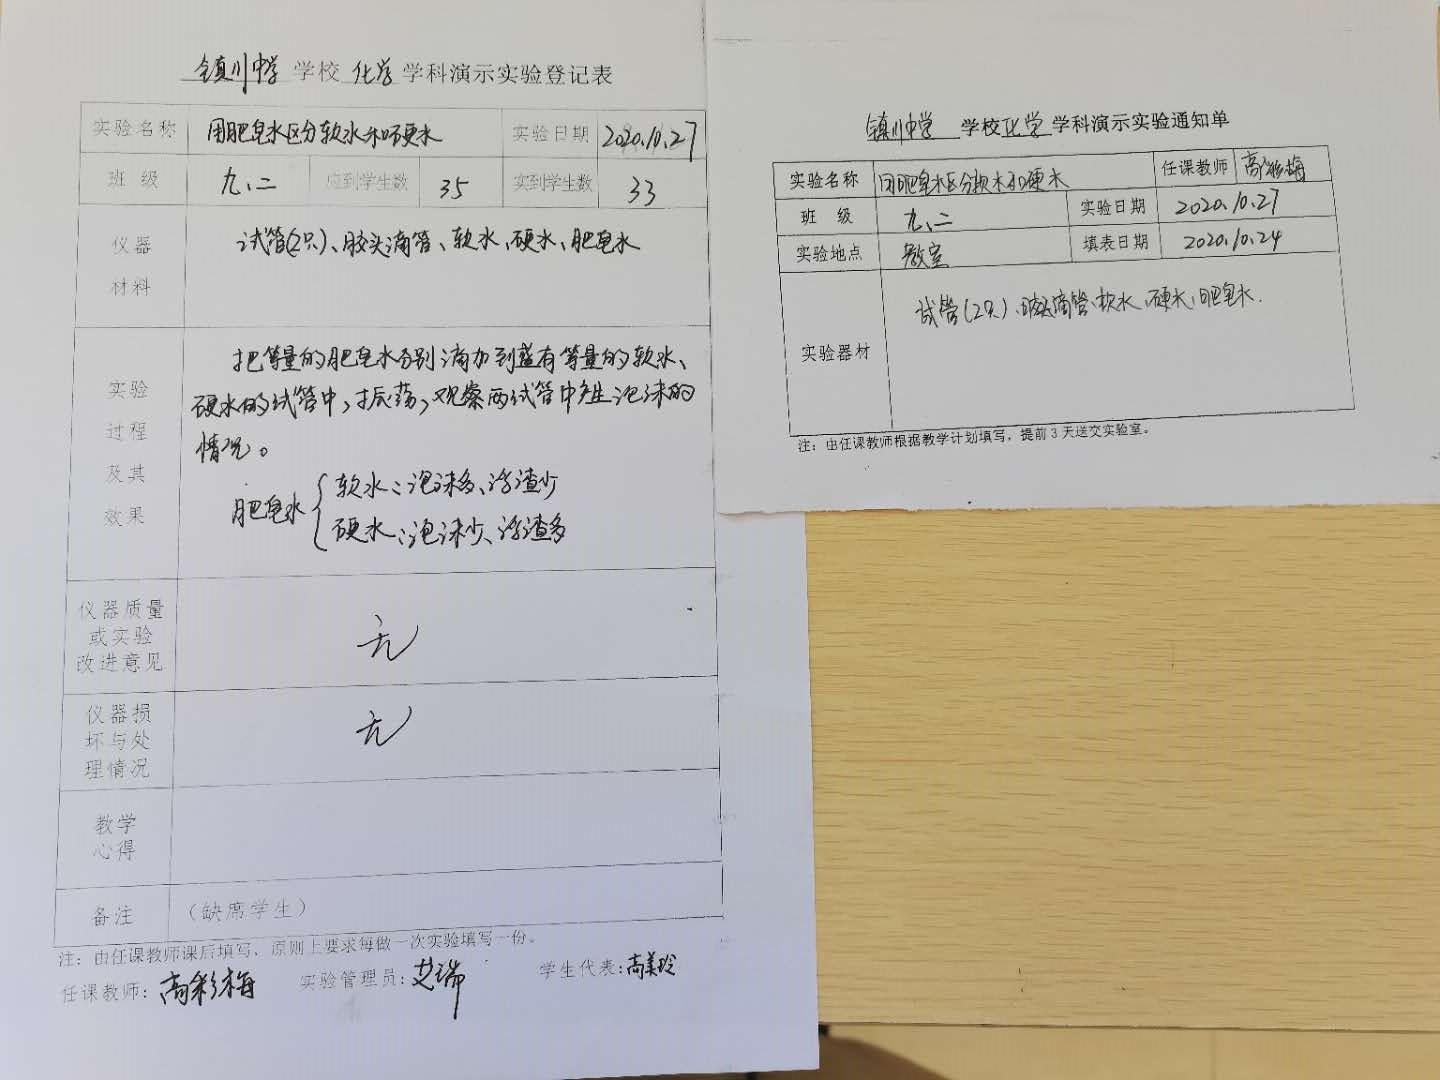 镇川中学 学校 化学 学科演示实验登记表
实验名称 用肥皂水区分软水和硬水 实验日期 2020.10.27
班 级 九、二 应到学生数 35 实到学生数 33
仪器
材料
试管(2只)、胶头滴管、软水、硬水、肥皂水
实验
过程
及其
效果
把等量的肥皂水分别滴加到盛有等量的软水、
硬水的试管中,振荡,观察两试管中产生泡沫的
情况。
肥皂水
软水:泡沫多、浮渣少
硬水:泡沫少、浮渣多
仪器质量
或实验
改进意见
无
仪器损
坏与处
理情况
无
教学
心得
备注 (缺席学生)
注:由任课教师课后填写,原则上要求每做一次实验填写一份。
任课教师:高彩梅 实验管理员:艾瑞 学生代表:高美玲
镇川中学 学校化学学科演示实验通知单
实验名称 用肥皂水区分软水和硬水 任课教师 高彩梅
班 级 九、二 实验日期 2020.10.27
实验地点 教室 填表日期 2020.10.24
实验器材 试管(2只)、胶头滴管、软水、硬水、肥皂水.
注:由任课教师根据教学计划填写,提前3天送交实验室。